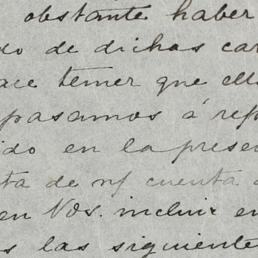 obstante haber
do de dichas car
ace temer que ell
pasamos á rep
ido en la prese
ta de n/ cuenta
en Vds. incluir en
s las siguiente